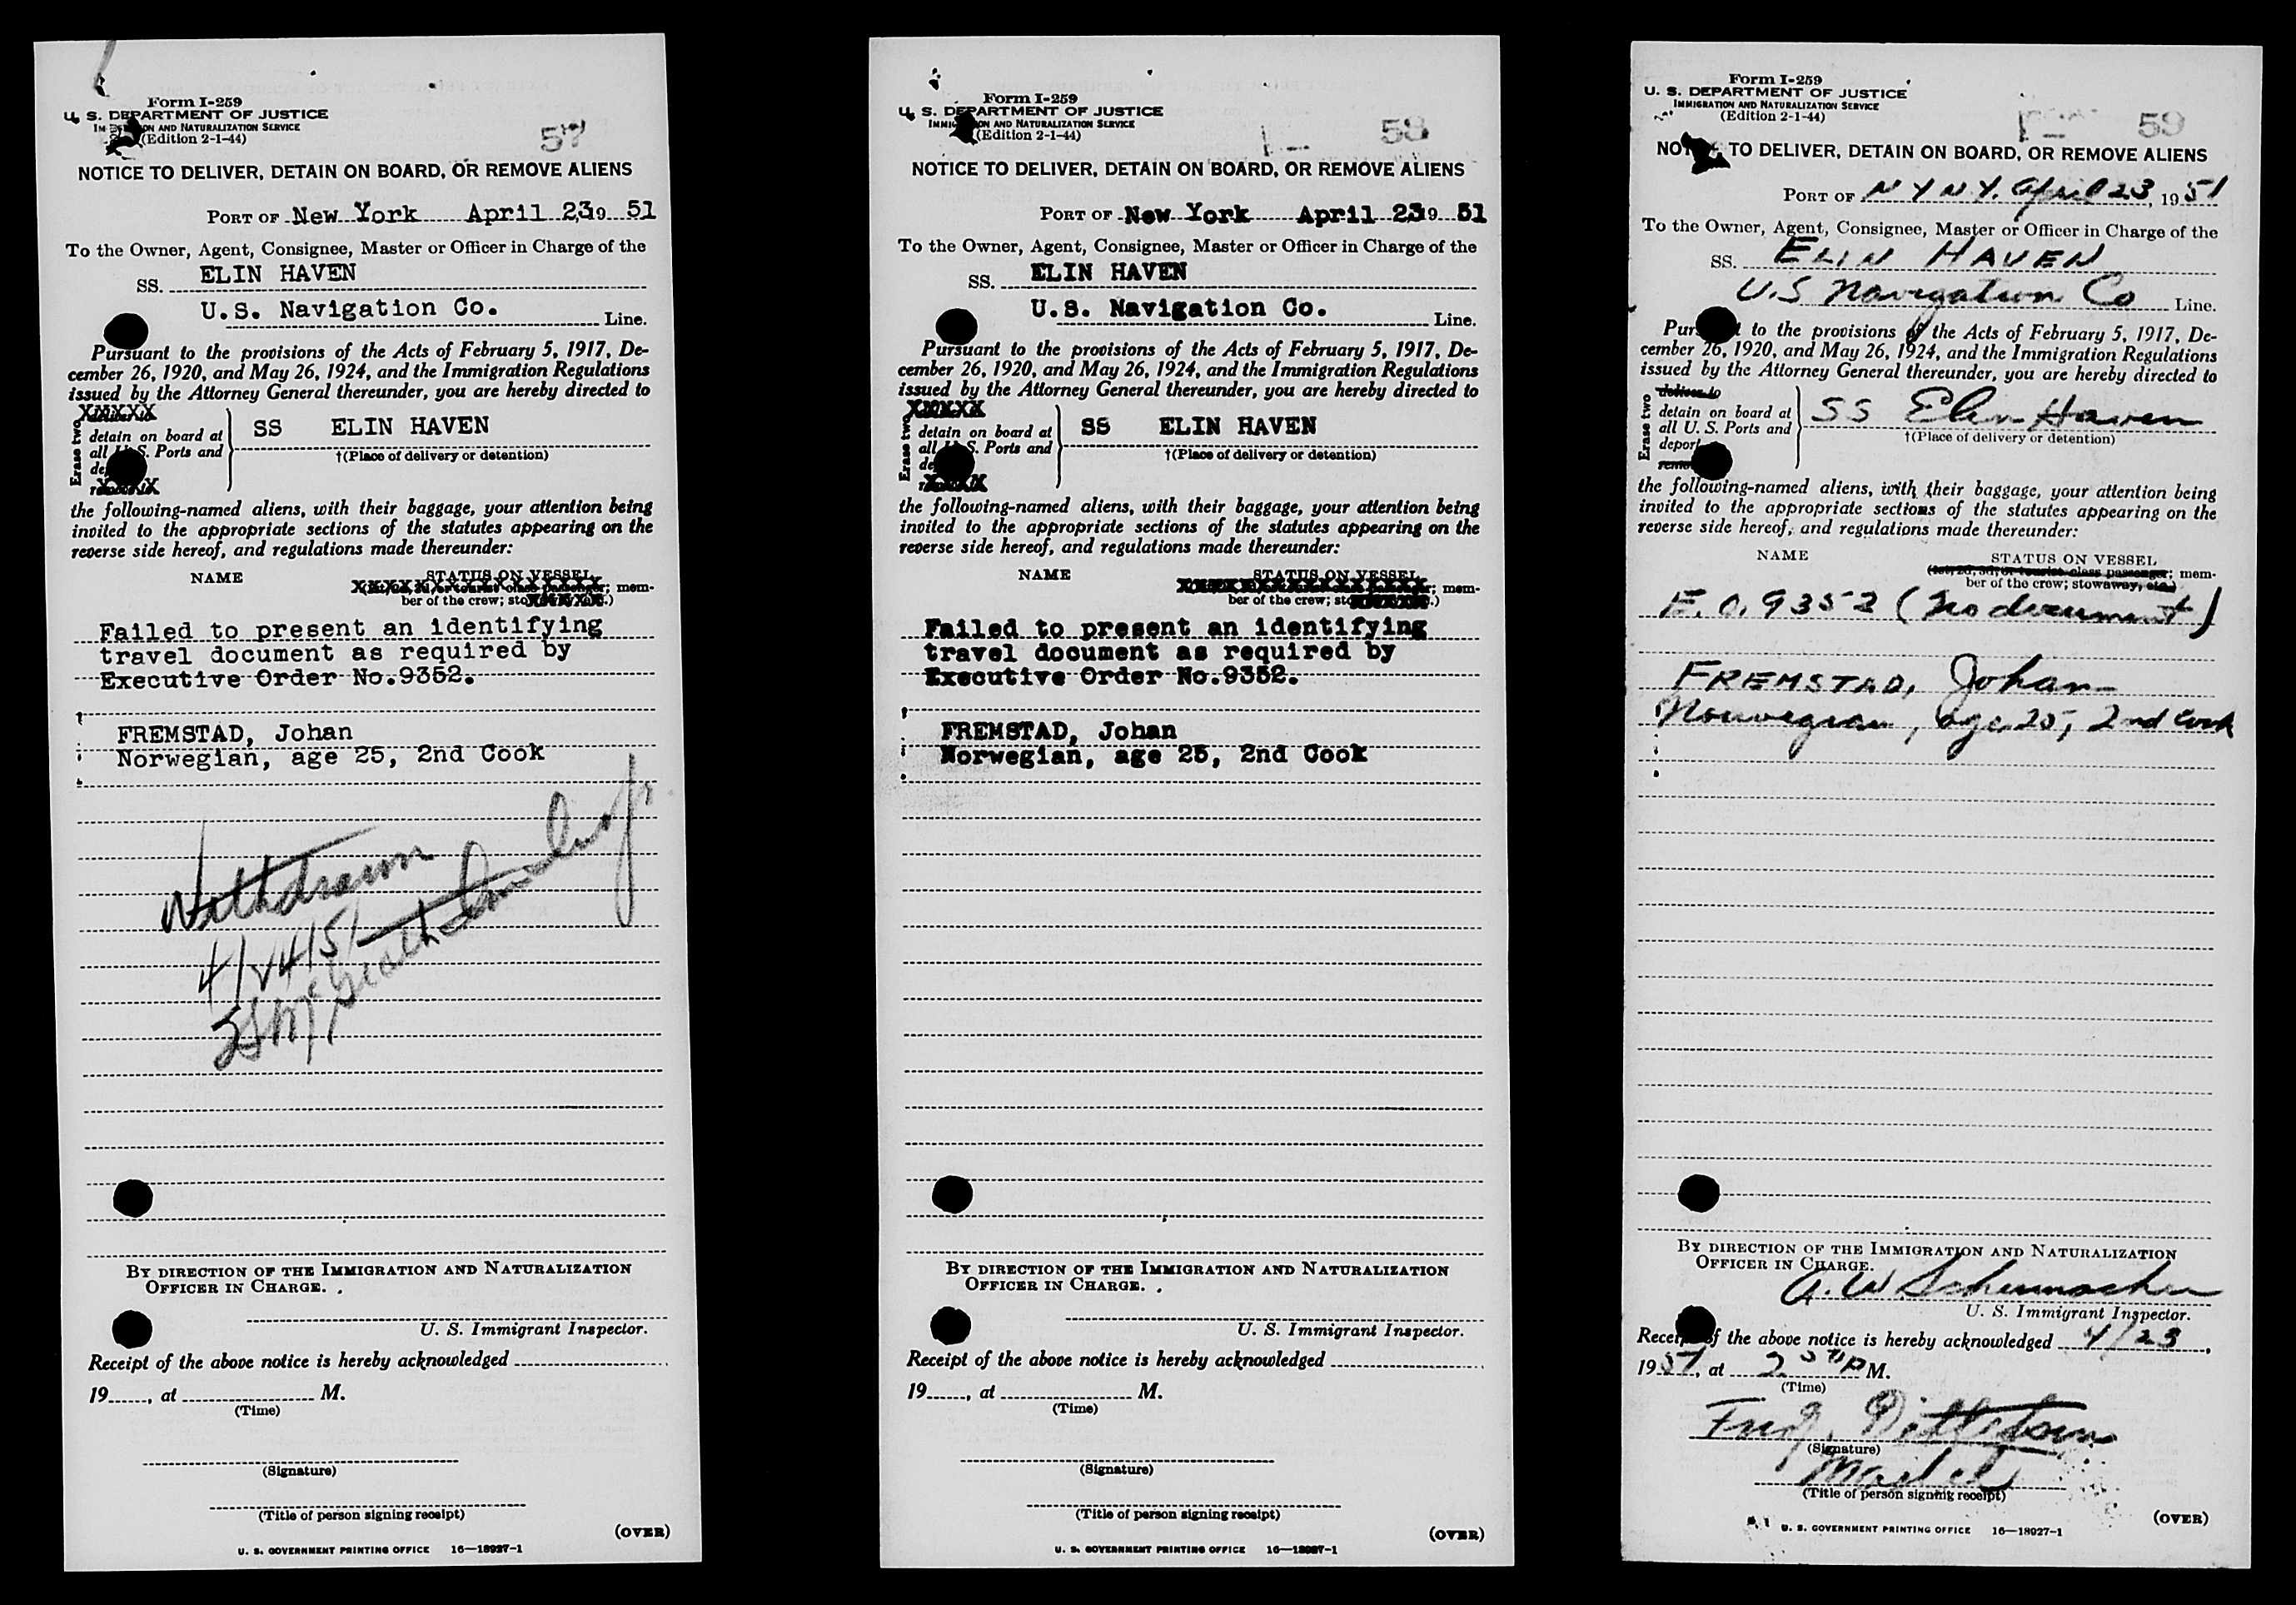 Form I-259
U. S. DEPARTMENT OF JUSTICE
IMMIGRATION AND NATURALIZATION SERVICE
(Edition 2-1-44)
57
NOTICE TO DELIVER, DETAIN ON BOARD, OR REMOVE ALIENS
PORT OF New York April 23, 19 51
To the Owner, Agent, Consignee, Master or Officer in Charge of the
SS. ELIN HAVEN
U.S. Navigation Co. Line.
Pursuant to the provisions of the Acts of February 5, 1917, De-
cember 26, 1920, and May 26, 1924, and the Immigration Regulations
issued by the Attorney General thereunder, you are hereby directed to
XXXXX
Erase two
detain on board at
all U. S. Ports and
SS ELIN HAVEN
†(Place of delivery or detention)
XXXX
the following-named aliens, with their baggage, your attention being
invited to the appropriate sections of the statutes appearing on the
reverse side hereof, and regulations made thereunder:
NAME STATUS ON VESSEL
mem-
ber of the crew;
Failed to present an identifying
travel document as required by
Executive Order No.9352.
FREMSTAD, Johan
Norwegian, age 25, 2nd Cook
Withdrawn
4/24/51
BY DIRECTION OF THE IMMIGRATION AND NATURALIZATION
OFFICER IN CHARGE.
U. S. Immigrant Inspector.
Receipt of the above notice is hereby acknowledged
19, at M.
(Time)
(Signature)
(Title of person signing receipt)
(OVER)
U. S. GOVERNMENT PRINTING OFFICE 16—18927-1
Form I-259
U. S. DEPARTMENT OF JUSTICE
IMMIGRATION AND NATURALIZATION SERVICE
(Edition 2-1-44)
58
NOTICE TO DELIVER, DETAIN ON BOARD, OR REMOVE ALIENS
PORT OF New York April 23 19 51
To the Owner, Agent, Consignee, Master or Officer in Charge of the
SS. ELIN HAVEN
U.S. Navigation Co. Line.
Pursuant to the provisions of the Acts of February 5, 1917, De-
cember 26, 1920, and May 26, 1924, and the Immigration Regulations
issued by the Attorney General thereunder, you are hereby directed to
XXXXX
Erase two
detain on board at
all U. S. Ports and
SS ELIN HAVEN
†(Place of delivery or detention)
XXXX
the following-named aliens, with their baggage, your attention being
invited to the appropriate sections of the statutes appearing on the
reverse side hereof, and regulations made thereunder:
NAME STATUS ON VESSEL
mem-
ber of the crew;
Failed to present an identifying
travel document as required by
Executive Order No.9352.
FREMSTAD, Johan
Norwegian, age 25, 2nd Cook
BY DIRECTION OF THE IMMIGRATION AND NATURALIZATION
OFFICER IN CHARGE.
U. S. Immigrant Inspector.
Receipt of the above notice is hereby acknowledged
19, at M.
(Time)
(Signature)
(Title of person signing receipt)
(OVER)
U. S. GOVERNMENT PRINTING OFFICE 16—18927-1
Form I-259
U. S. DEPARTMENT OF JUSTICE
IMMIGRATION AND NATURALIZATION SERVICE
(Edition 2-1-44)
59
NOTICE TO DELIVER, DETAIN ON BOARD, OR REMOVE ALIENS
PORT OF N Y N Y. April 23, 1951
To the Owner, Agent, Consignee, Master or Officer in Charge of the
SS. ELIN HAVEN
U.S Navigation Co Line.
Pursuant to the provisions of the Acts of February 5, 1917, De-
cember 26, 1920, and May 26, 1924, and the Immigration Regulations
issued by the Attorney General thereunder, you are hereby directed to
deliver to
Erase two
detain on board at
all U. S. Ports and
deport
SS Elin Haven
†(Place of delivery or detention)
the following-named aliens, with their baggage, your attention being
invited to the appropriate sections of the statutes appearing on the
reverse side hereof, and regulations made thereunder:
NAME STATUS ON VESSEL
(1st, 2d, 3d, or tourist class passenger; mem-
ber of the crew; stowaway, etc.)
E.O. 9352 (no document)
FREMSTAD, Johan
Norwegian, age 25, 2nd Cook
BY DIRECTION OF THE IMMIGRATION AND NATURALIZATION
OFFICER IN CHARGE.
A. W. Schumacher
U. S. Immigrant Inspector.
Receipt of the above notice is hereby acknowledged 4/23,
1951, at 2 PM.
(Time)
(Signature)
(Title of person signing receipt)
(OVER)
U. S. GOVERNMENT PRINTING OFFICE 16—18927-1